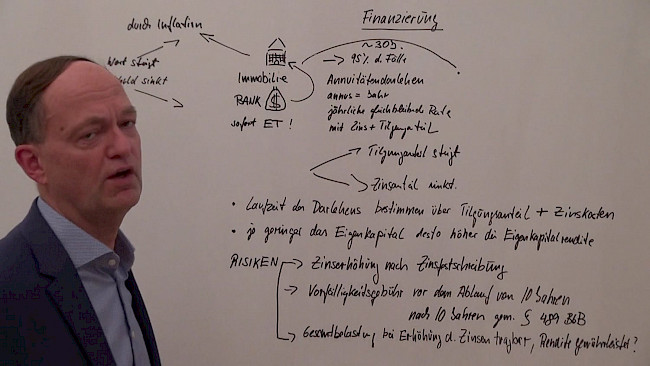 Finanzierung
durch Inflation
Wert steigt
sinkt
~ 30J.
→ 95% d. Fälle
Immobilie
BANK $
sofort ET !
Annuitätendarlehen
annus = Jahr
jährliche gleichbleibende Rate
mit Zins + Tilgungsanteil
Tilgungsanteil steigt
Zinsanteil sinkt.
• Laufzeit des Darlehens bestimmen über Tilgungsanteil + Zinskosten
• je geringer das Eigenkapital desto höher die Eigenkapitalrendite
RISIKEN → Zinserhöhung nach Zinsfestschreibung
→ Vorfälligkeitsgebühr vor dem Ablauf von 10 Jahren
nach 10 Jahren gem. § 489 BGB
→ Gesamtbelastung bei Erhöhung d. Zinsen tragbar, Rendite gewährleistet?